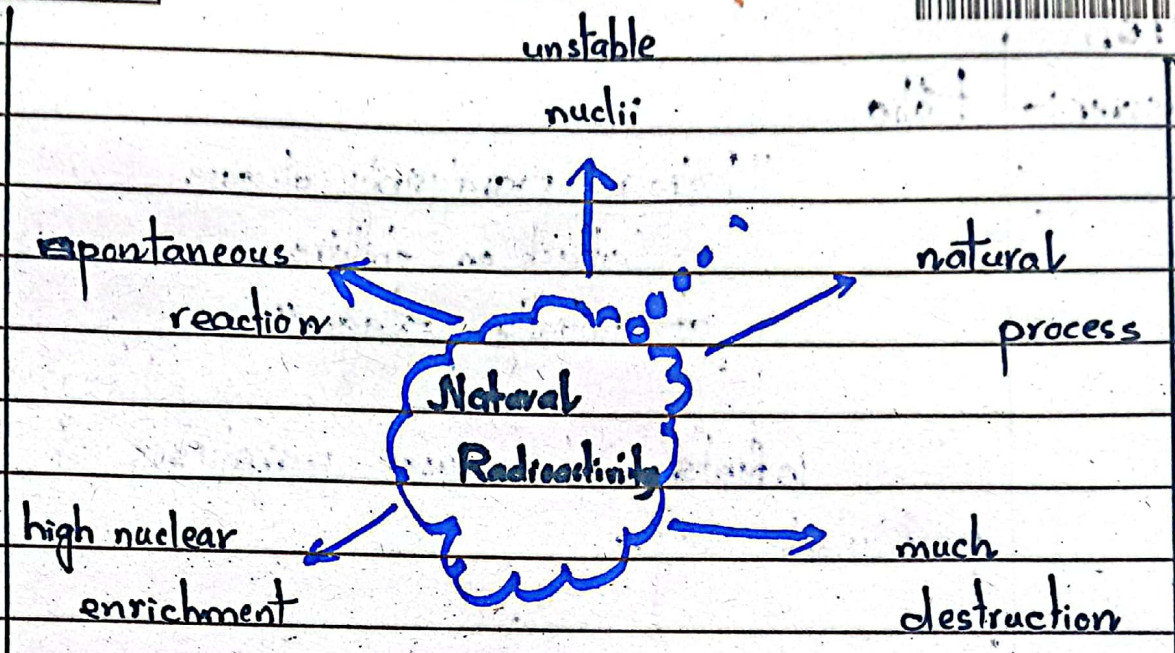 unstable
nuclii
spontaneous
reaction
natural
process
Natural
Radioactivity
high nuclear
enrichment
much
destruction